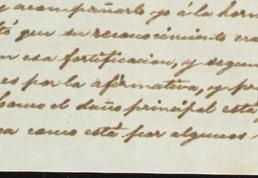 y acompañarlo yo á la hora
tó que su reconocimiento era
en esa fortificacion, y segun
es por la afirmativa, y pr
bamo el daño principal está
ea como está por algunos